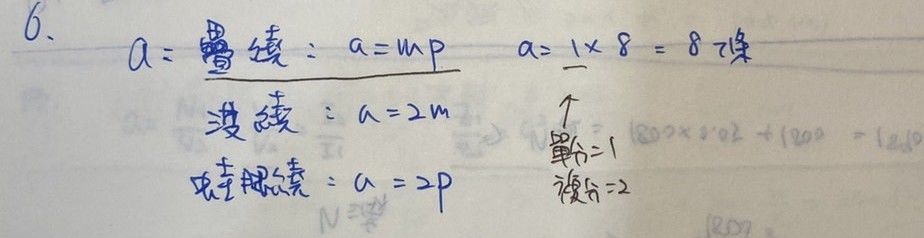 6.
a = 疊繞 : a = mp a = 1 × 8 = 8 條
波繞 : a = 2m
蛙腿繞 : a = 2p
↑
單分 = 1
複分 = 2